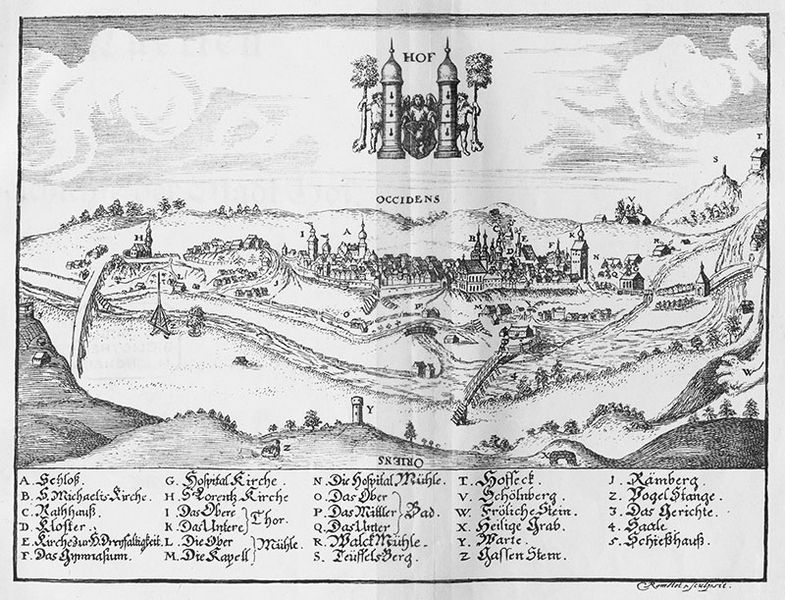 HOF
OCCIDENS
ORIENS
A. Schloß.
B. S. Michaelis-Kirche.
C. Rathhauß.
D. Kloster.
E. Kirche zur H. Dreyfaltigkeit.
F. Das Gymnasium.
G. Hospital Kirche.
H. S. Lorentz Kirche
I. Das Obere
K. Das Untere } Thor.
L. Die Ober
M. Die Kapell } Mühle.
N. Die Hospital Mühle.
O. Das Ober
P. Das Mittler } Bad.
Q. Das Unter
R. Walck Mühle.
S. Teüffels Berg.
T. Hofleck.
V. Schölnberg.
W. Fröliche Stein.
X. Heilige Grab.
Y. Warte.
Z Gassen Stein.
1. Rämberg.
2. Vogel Stange.
3. Das Gerichte.
4. Saale
5. Schießhauß.
sculpsit.